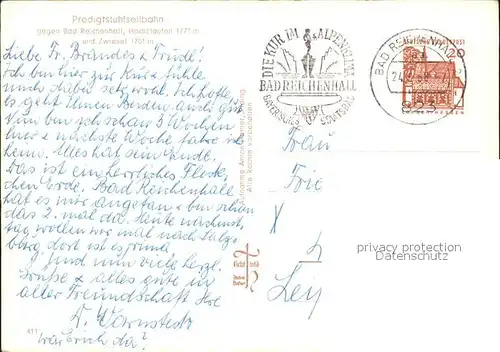 Predigtstuhlseilbahn
gegen Bad Reichenhall, Hochstaufen 1771 m
und Zwiesel 1781 m
Liebe Fr. Brandes & Trude!
Ich bin hier zur Kur & fühle
mich dabei sehr wohl. Ich hoffe,
es geht Ihnen Beiden auch gut.
Nun bin ich schon 3 Wochen
hier & nächste Woche fahre ich
heim. Alles hat sein Ende.
Das ist ein herrliches Fleck-
chen Erde, Bad Reichenhall
hat es mir angetan & bin schon
das 2. mal da. Heute nachmit-
tag wollen wir mal nach Salz-
burg dort ist es prima
Und nun viele herzl.
Grüße & alles gute in
alter Freundschaft Ihre
A. Warnsteck
War Erich da?
DIE KUR IM ALPENKLIMA
BAD REICHENHALL
BAYERISCHES STAATSBAD
BAD REICHENHALL
DEUTSCHE BUNDESPOST
20
Frau
Ley
privacy protection
Datenschutz